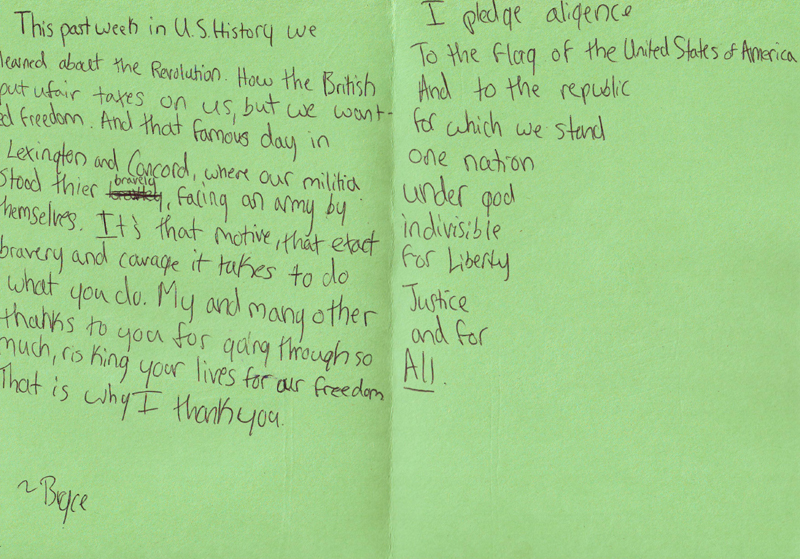 This past week in U.S. History we
learned about the Revolution. How the British
put ufair taxes on us, but we want-
ed freedom. And that famous day in
Lexington and Concord, where our militia
stood thier bravely, facing an army by
themselves. It's that motive, that exact
bravery and courage it takes to do
what you do. My and many other
thanks to you for going through so
much, risking your lives for our freedom
That is why I thank you.
~ Bryce
I pledge aligence
To the flag of the United States of America
And to the republic
for which we stand
one nation
under god
indivisible
for Liberty
Justice
and for
All.